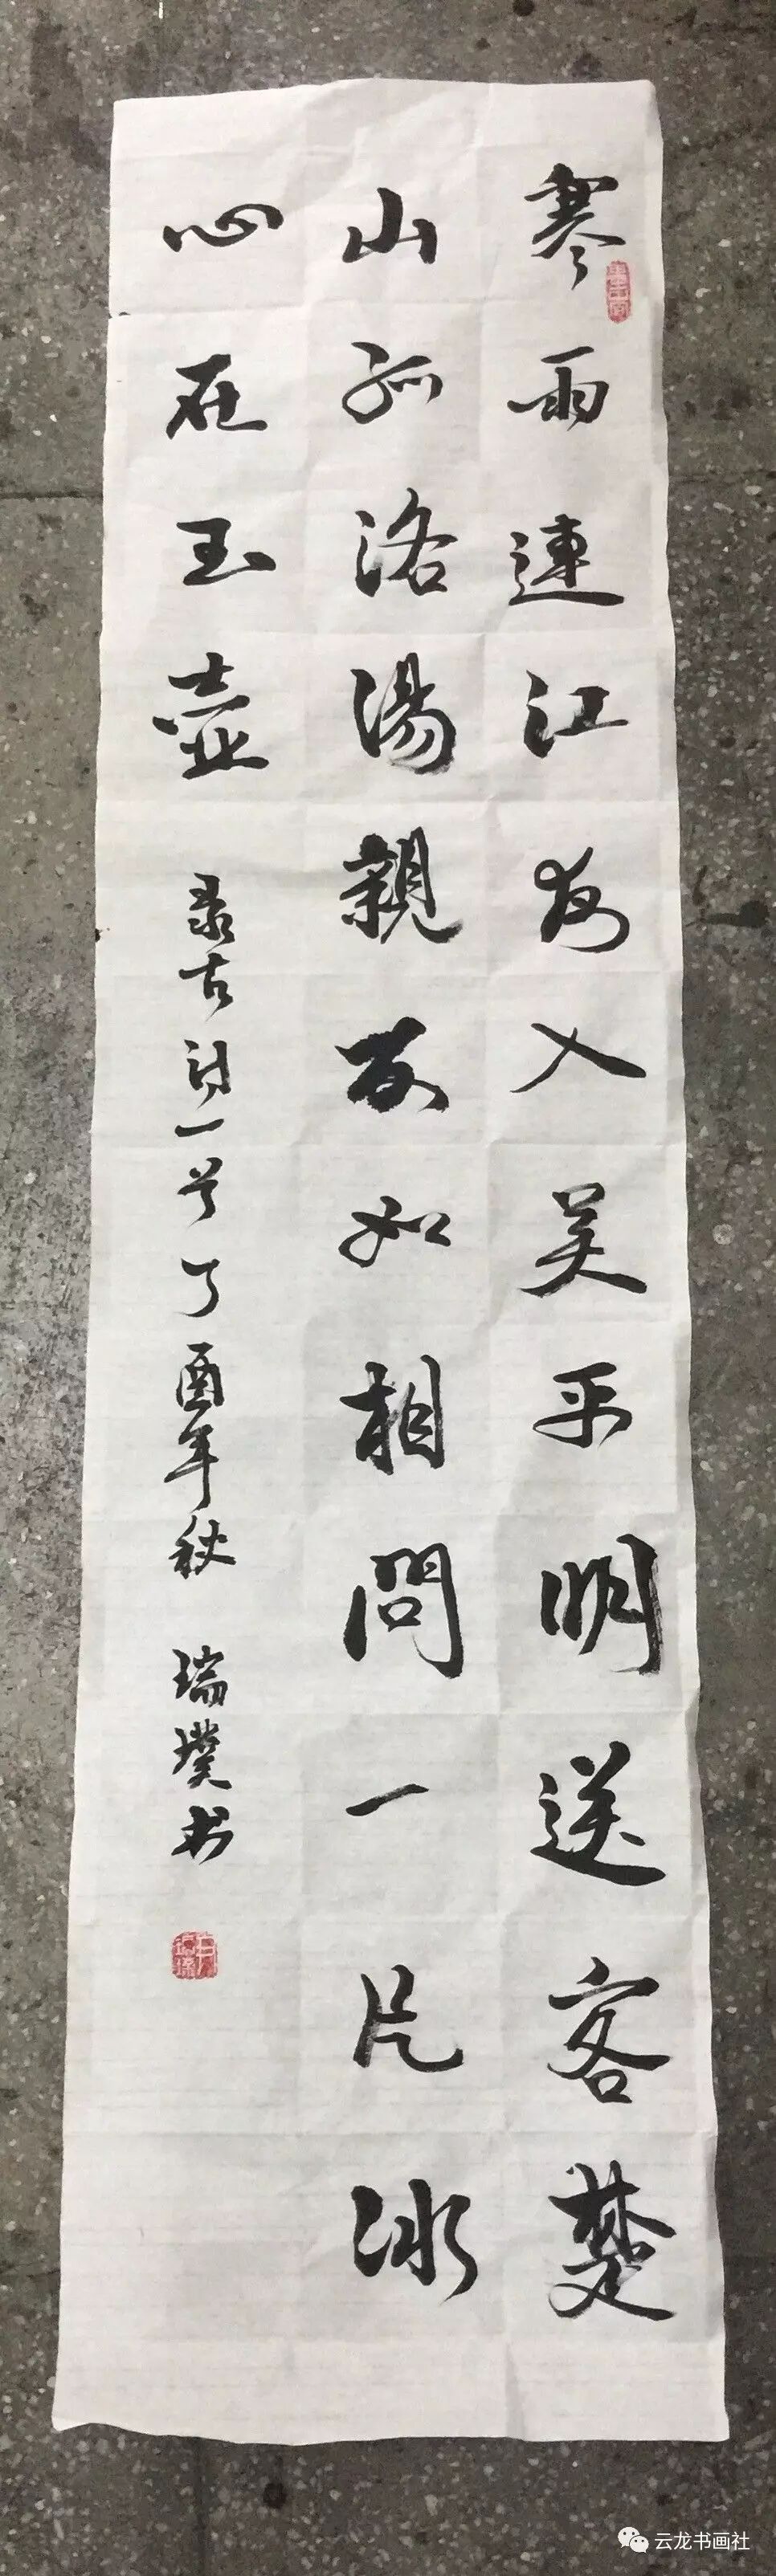 寒雨連江夜入吴平明送客楚
山孤洛湯親友如相問一片冰
心在玉壶 录古诗一首丁酉年秋 瑞璞书
云龙书画社